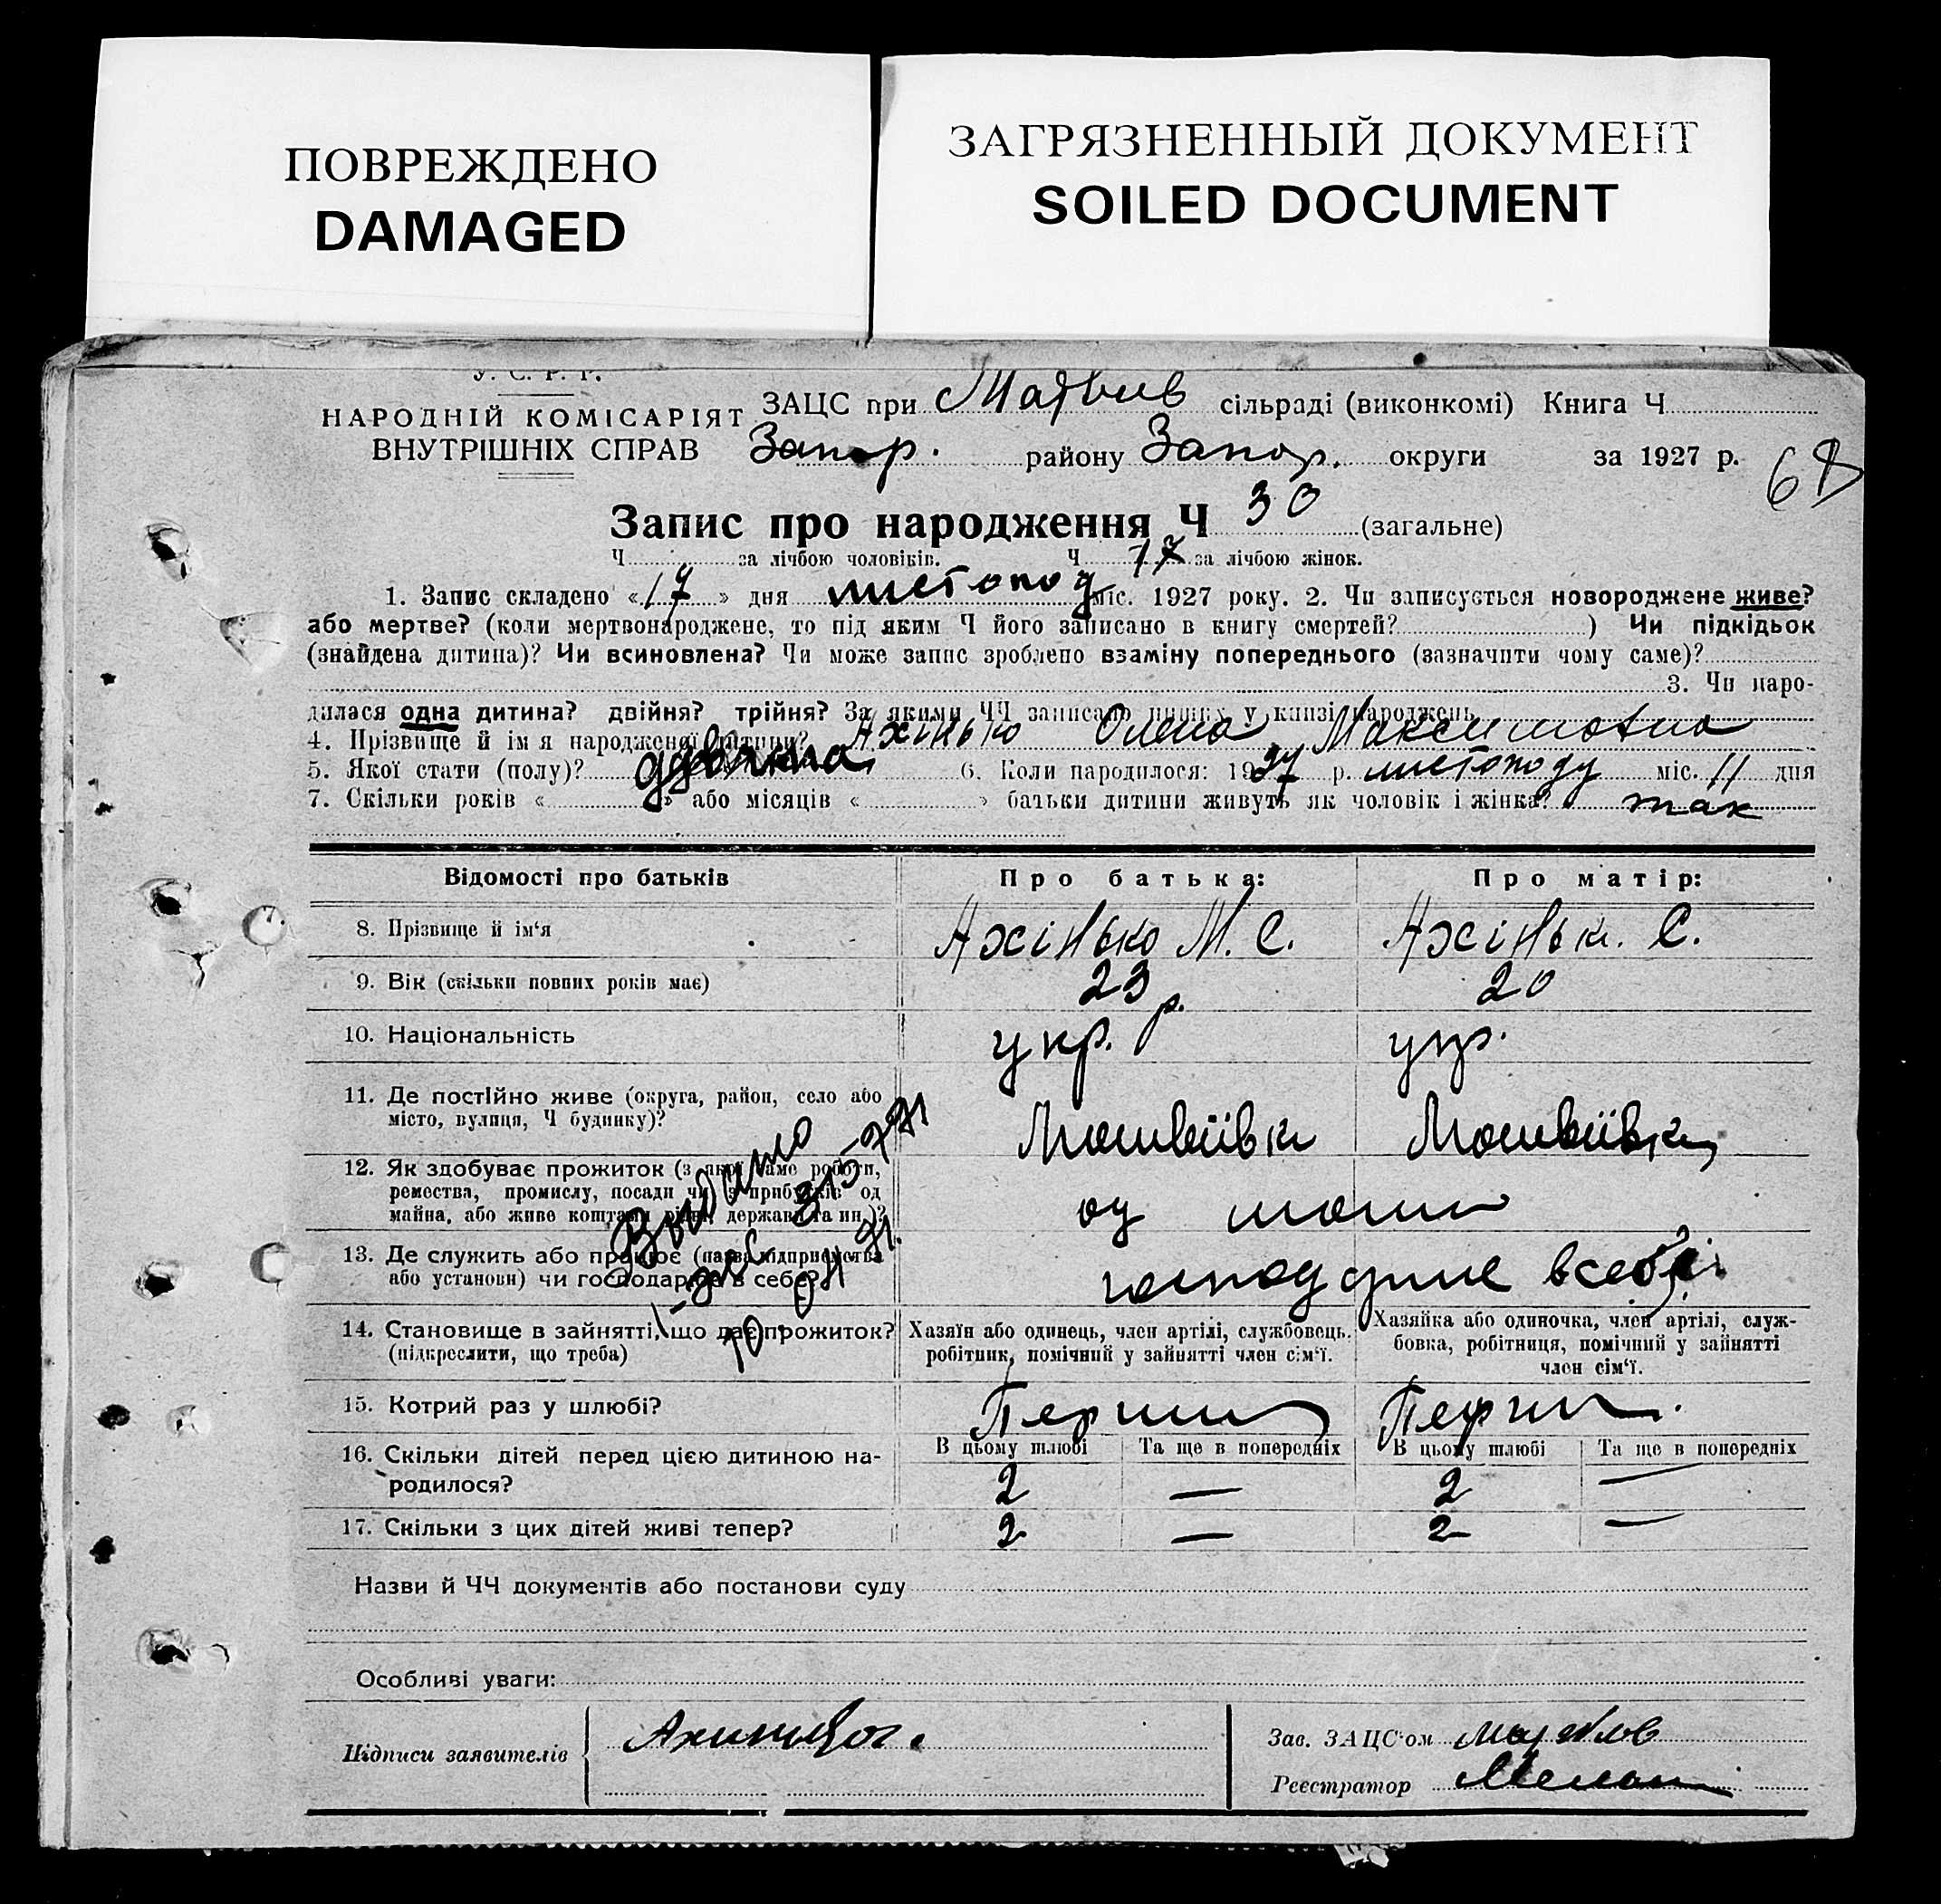 ПОВРЕЖДЕНО
DAMAGED
ЗАГРЯЗНЕННЫЙ ДОКУМЕНТ
SOILED DOCUMENT
У. С. Р. Р.
НАРОДНІЙ КОМІСАРІЯТ
ВНУТРІШНІХ СПРАВ
ЗАЦС при Матвиев сільраді (виконкомі) Книга Ч
Запор. району Запор. округи за 1927 р.
68
Запис про народження Ч 30 (загальне)
Ч за лічбою чоловіків. Ч 17 за лічбою жінок.
1. Запис складено «17» дня листопод міс. 1927 року. 2. Чи записується новороджене живе?
або мертве? (коли мертвонароджене, то під яким Ч його записано в книгу смертей? ) Чи підкідьок
(знайдена дитина)? Чи всиновлена? Чи може запис зроблено взаміну попереднього (зазначити чому саме)?
3. Чи наро-
дилася одна дитина? двійня? трійня? За якими ЧЧ записано инших у книзі народжень
4. Прізвище й ім я народженої дитини? Ахінько Олена Максимовна
5. Якої стати (полу)? 6. Коли народилося: 1927 р. листоподу міс. 11 дня
7. Скільки років « » або місяців « » батьки дитини живуть як чоловік і жінка? так
Відомості про батьків Про батька: Про матір:
8. Прізвище й ім'я Ахінько М. С. Ахіньк. С.
9. Вік (скільки повних років має) 23 р. 20
10. Національність укр. укр.
11. Де постійно живе (округа, район, село або
місто, вулиця, Ч будинку)? Матвіївка Матвіївка
12. Як здобуває прожиток (з якої саме роботи,
ремества, промислу, посади чи з прибутків од
майна, або живе коштами рідні, держави та ин.)? од
13. Де служить або працює (назва підприємства
або установи) чи господарює в себе? всебе
14. Становище в зайнятті, що дає прожиток?
(підкреслити, що треба)
Хазяїн або одинець, член артілі, службовець,
робітник, помічний у зайнятті член сім'ї.
Хазяйка або одиночка, член артілі, служ-
бовка, робітниця, помічний у зайнятті
член сім'ї.
15. Котрий раз у шлюбі? Перший Перши
В цьому шлюбі Та ще в попередніх В цьому шлюбі Та ще в попередніх
16. Скільки дітей перед цією дитиною на-
родилося? 2 — 2 —
17. Скільки з цих дітей живі тепер? 2 — 2 —
Выдано
Назви й ЧЧ документів або постанови суду
Особливі уваги:
Підписи заявителів
Зав. ЗАЦС'ом
Реєстратор